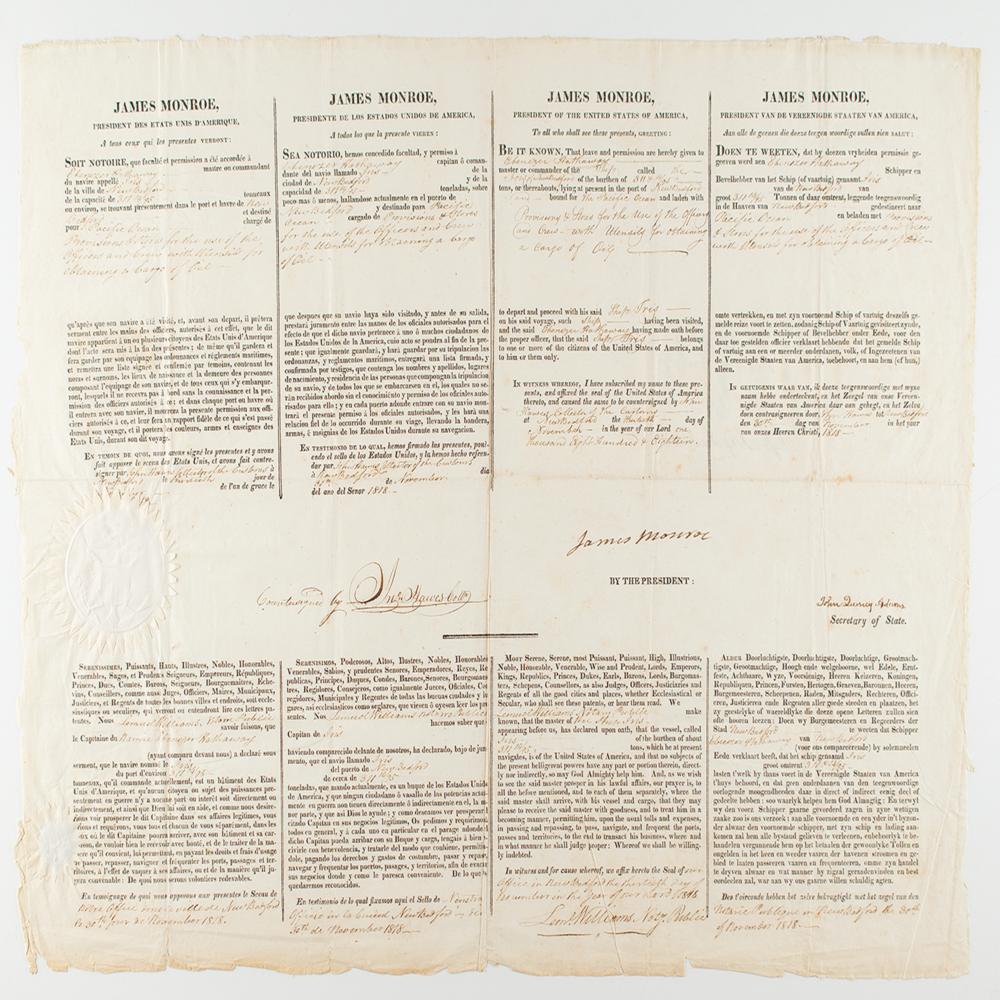 JAMES MONROE,
PRESIDENT DES ETATS UNIS D'AMERIQUE,
A tous ceux qui les presentes VERRONT:
SOIT NOTOIRE, que faculté et permission a été accordée à
Ebenezer Hathaway maitre ou commandant
du navire appellé Iris
de la ville de New Bedford
de la capacité de tonneaux
ou environ, se trouvant présentement dans le port et havre de
et destiné
pour Pacific Ocean chargé de
Provisions & Stores for the use of the
Officers and Crew with Utensils for
obtaining a Cargo of Oil
qu'après que son navire a été visité, et, avant son départ, il prêtera
serment entre les mains des officers, autorisés à cet effet, que le dit
navire appartient à un ou plusieurs citoyens des Etats Unis d'Amerique
dont l'acte sera mis à la fin des présentes; de même qu'il gardera et
fera garder par son equipage les ordonnances et réglemens maritimes,
et remettra une liste signée et confirmée par temoins, contenant les
noms et surnoms, les lieux de naissance et la demeure des personnes
composant l'equipage de son navire, et de tous ceux qui s'y embarque-
ront, lesquels il ne recevra pas à bord sans la connaissance et la per-
mission des officiers autorisés à ce; et dans chaque port ou havre où
il entrera avec son navire, il montrera la presente permission aux offi-
ciers autorisés à ce, et leur fera un rapport fidèle de ce qui s'est passé
durant son voyage, et il portera les couleurs, armes et enseignes des
Etats Unis, durant son dit voyage.
EN TEMOIN DE QUOI, nous avons signé les présentes et y avons
fait apposer le sceau des Etats Unis, et avons fait contre-
signer par John Hawes Collector of the Customs à
New Bedford le thirtieth jour de
de l'an de grace le
JAMES MONROE,
PRESIDENTE DE LOS ESTADOS UNIDOS DE AMERICA,
A todos los que la presente VIEREN:
SEA NOTORIO, hemos concedido facultad, y permiso à
Ebenezer Hathaway capitan ô coman-
dante del navio llamado Iris de la
ciudad de New Bedford y de la
capacidad de 311 4/95 toneladas, sobre
poco mas ô menos, hallandose actualmente en el puerto de
New Bedford y destinado para Pacific
Ocean cargado de Provisions & Stores
for the use of the Officers and Crew
with Utensils for obtaining a Cargo
of Oil
que despues que su navio haya sido visitado, y antes de su salida,
prestará juramento entre las manos de los oficiales autorizados para el
efecto de que el dicho navio pertenece à uno ô muchos ciudadanos de
los Estados Unidos de America, cuio acto se pondra al fin de la pre-
sente; que igualmente guardará, y hará guardar por su tripulacion las
ordenanzas, y reglamentos maritimos, entregará una lista firmada, y
confirmada por testigos, que contenga los nombres y apellidos, lugares
de nacimiento, y residencia de las personas que compongan la tripulacion
de su navio, y de todos los que se embarcasen en el, los quales no se-
rán recibidos abordo sin el conocimiento y permiso de los oficiales auto-
rizados para ello; y en cada puerto adonde entrare con su navio mon-
trará el presente permiso à los oficiales autorizados, y les hará una
relacion fiel de lo occurrido durante su viage, llevando la bandera,
armas, é insignias de los Estados Unidos durante su navegacion.
EN TESTIMONIO DE LO QUAL, hemos firmado las presentes, poni-
endo el sello de los Estados Unidos, y la hemos hecho refren-
dar por John Hawes Collector of the Customs
à New Bedford dia
30th de November
del ano del Senor 1818.
JAMES MONROE,
PRESIDENT OF THE UNITED STATES OF AMERICA,
To all who shall see these presents, GREETING:
BE IT KNOWN, That leave and permission are hereby given to
Ebenezer Hathaway
master or commander of the Ship called
of New Bedford of the burthen of 311 4/95
tons, or thereabouts, lying at present in the port of New Bedford
bound for The Pacific Ocean and laden with
Provisions & Stores for the Use of the Officers
and Crew with Utensils for obtaining
a Cargo of Oil
to depart and proceed with his said Ship Iris
on his said voyage, such Ship having been visited,
and the said Ebenezer Hathaway having made oath before
the proper officer, that the said Ship Iris belongs
to one or more of the citizens of the United States of America, and
to him or them only.
IN WITNESS WHEREOF, I have subscribed my name to these pre-
sents, and affixed the seal of the United States of America
thereto, and caused the same to be countersigned by John
Hawes Collector of the Customs
at New Bedford the thirtieth day of
November in the year of our Lord one
thousand Eight hundred & Eighteen.
JAMES MONROE,
PRESIDENT VAN DE VEREENIGDE STAATEN VAN AMERICA,
Aan alle de geenen die deeze tegen woordige zullen zien SALUT:
DOEN TE WEETEN, dat by deezen vryheiden permissie ge-
geeven werd aen Ebenezer Hathaway
Schipper en
Bevelhebber van het Schip (of vaartuig) genaamt Iris
van de New Bedford van
groot 311 4/95 Tonnen of daar omtrent, leggende tegenwoordig
in de Haaven van New Bedford gedestineert naar
Pacific Ocean en beladen met Provisions
& Stores for the use of the Officers and Crew
with Utensils for obtaining a Cargo of Oil
omte vertrekken, en met zyn voornoemd Schip of vaartuig deszelfs ge-
melde reize voort te zetten, zodanig Schip of vaartuig gevisiteert zynde,
en de voornoemde Schipper of Bevelhebber onder Eede, voor den
daar toe gestelden officier verklaart hebbende dat het gemelde Schip
of vartuig aan een or meerder onderdanen, volk, of Ingezeetenen van
de Vereenigte Staaten van America, toebehoort, en aan hem (of hun)
alleen.
IN GETUIGENIS WAAR VAN, ik deeze tegenwoordige met myne
naam hebbe ondertekend, en het Zeegel van onze Vereen-
igte Staaten van America daar aan gehegt, en het Zelve
doen contrasigneeren door John Hawes te New Bedford
den 30th dag van November in het jaar
van onzes Heeren Christi, 1818
James Monroe
BY THE PRESIDENT:
Countersigned by Jno. Hawes Collr
John Quincy Adams
Secretary of State.
SERENISSIMES, Puissants, Hauts, Illustres, Nobles, Honorables,
Venerables, Sages, et Prudens Seigneurs, Empereurs, Républiques,
Princes, Ducs, Comtes, Barons, Seigneurs, Bourguemaitres, Eche-
vins, Conseillers, comme aussi Juges, Officiers, Maires, Municipaux,
Justiciers, et Regents de toutes les bonnes villes et endroits, soit eccle-
siastiques ou seculiers, qui verront ou entendront lire ces lettres pa-
tentes. Nous Lemuel Williams Notary Public
savoir faisons, que
le Capitaine du Navire Ebenezer Hathaway
(ayant comparu devant nous) a déclaré sous
serment, que le navire nommé le Iris
du port d'environ 311 4/95
tonneaux, qu'il commande actuellement, est un bâtiment des Etats
Unis d'Amerique, et qu'aucun citoyen ou sujet des puissances pré-
sentement en guerre n'y a aucune part ou intérêt soit directement ou
indirectement, et ainsi que Dieu lui soit en aide, et comme nous desire-
rions voir prosperer le dit Capitaine dans ses affaires legitimes, vous
prions et requérons, vous tous et chacun de vous séparément, dans les
lieux où le dit Capitaine pourra arriver, avec son bâtiment et sa car-
gaison, de vouloir bien le recevoir avec bonté, et de le traiter de la ma-
nière qu'il convient, lui permettant, en payant les droits et frais d'usage
de passer, repasser, naviguer et fréquenter les ports, passages et ter-
ritoires, à l'effet de vaquer à ses affaires, où et de la manière qu'il ju-
gera convenable: De quoi nous serons volontiers redevables.
En temoignage de quoi nous apposons aux présentes le Sceau de
notre Office
le 30th jour de November 1818.
SERENISIMOS, Poderosos, Altos, Ilustres, Nobles, Honorables
Venerables, Sabios, y prudentes Senores, Emperadores, Reyes, Re
publicas, Principes, Duques, Condes, Barones, Senores, Bourgomaes
tres, Regidores, Consejeros, como igualmente Jueces, Oficiales, Cor
regidores, Municipales y Regentes de todas las buenas villas y lu
gares, asi eclesiasticos como seglares, que viesen ô oyesen leer los pre
sentes. Nos Lemuel Williams Notary Public
hacemos saber que
Capitan de Iris
haviendo comparecido delante de nosotros, ha declarado, bajo de jura-
mento, que el navio llamado Iris
del puerto de New Bedford
de cerca de 311 4/95
toneladas, que manda actualmente, es un buque de los Estados Unidos
de America, y que ningun ciudadano ô vasallo de las potencias actual-
mente en guerra non tienen directamente ô indirectamente en el, la me
nor parte, y que asi Dios le ayude; y como deseamos ver prosperar el
citado Capitan en sus asuntos legitimos, Os pedimos y requirimos à
todos en general, y à cada uno en particular en el parage adonde el
dicho Capitan pueda arribar con su Buque y carga, tengais à bien re-
civirle con benevolencia, y tratarle del modo que conbiene, permitien-
dole, pagando los derechos y gastos de costumbre, pasar y repasar
navegar y frequentar los puertos, pasages, y territorios, afin de evacuar
sus negocios donde y como le paresca conveniente. De lo que le
quedaremos reconocidos.
En testimonio de lo qual fixamos aqui el Sello de Nuestra
Officio en la Ciudad New Bedford
30th de November 1818
MOST Serene, Serene, most Puissant, Puissant, High, Illustrious,
Noble, Honorable, Venerable, Wise and Prudent, Lords, Emperors,
Kings, Republics, Princes, Dukes, Earls, Barons, Lords, Burgomas-
ters, Schepens, Counsellors, as also Judges, Officers, Justiciaries and
Regents of all the good cities and places, whether Ecclesiastical or
Secular, who shall see these patents, or hear them read. We
Lemuel Williams Notary Public make
known, that the master of the Ship Iris
appearing before us, has declared upon oath, that the vessel, called
Iris of the burthen of about
311 4/95 tons, which he at present
navigates, is of the United States of America, and that no subjects of
the present belligerent powers have any part or portion therein, direct-
ly nor indirectly, so may God Almighty help him. And, as we wish
to see the said master prosper in his lawful affairs, our prayer is, to all
the before mentioned, and to each of them separately, where the
said master shall arrive, with his vessel and cargo, that they may
please to receive the said master with goodness, and to treat him in a
becoming manner, permitting him, upon the usual tolls and expenses,
in passing and repassing, to pass, navigate, and frequent the ports,
passes and territories, to the end to transact his business, where and
in what manner he shall judge proper: Whereof we shall be willing-
ly indebted.
In witness and for cause whereof, we affix hereto the Seal of our
Office in New Bedford the thirtieth day of
November in the year of our Lord 1818
Lem. Williams, Noty. Public
AELDER Doorluchtigste, Doorluchtigste, Doorluchtige, Grootmach-
tigste, Grootmachtige, Hoogh ende welgeboorne, wel Edele, Erent-
feste, Achtbaare, Wyze, Voorsinige, Heeren Keizeren, Koningen,
Republiquen, Princen, Fursten, Hertogen, Graeven, Baronnen, Heeren,
Burgermeesteren, Schepenen, Raden, Mitsgaders, Rechteren, Offici-
eren, Justicieren ende Regenten aller goede steeden en plaatzen, het
zy geestelyke of waereldlyke die deeze opene Letteren zullen zien
ofte hooren leezen: Doen wy Burgemeesteren en Regeerders der
Stad New Bedford te weeten dat Schipper
Ebenezer Hathaway van New Bedford
(voor ons comparerende) by solemneelen
Eede verklaart heeft, dat het schip genaamt Iris
groot omtrent 311 4/95
lasten t'welk hy thans voert in de Vereenigte Staaten van America
t'huys behoord, en dat geen onderdaanen van de tegenwoordige
oorlogende moogendheeden daar in direct of indirect eenig deel of
gedeelte hebben: soo waarlyk helpen hem God Almagtig: En terwyl
wy den voorsz Schipper gaerne gevordert zagen in zyne wettige
zaake zoo is ons verzoek: aan alle voornoemde en een yder in't byzon-
der alwaar den voornoemde schipper, met zyn schip en lading aan-
koomen zal hem alle beleeftheid te verleenen, enbehoorlyk te be-
handelen vergunnende hem op het betaalen der gewoonlyke Tollen en
ongelden in het heen en weeder vaaren der havenen stroomen en ge-
bied te laaten passeeren vaaren en frequenteeren, omme zyn handel
te dryven alwaar en wat manier hy zigraal gerandvinden en best
oordeelen zal, war aan wy ons gaarne willen schuldig agten.
Des t'oirconde hebben het zelve bekragtigt met het zegel van den
Notarie Publique in New Bedford the 30th
of November 1818